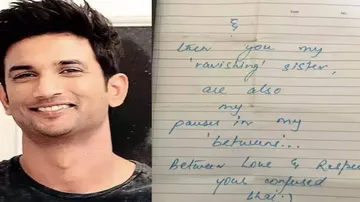 &
then you my
'ravishing' sister,
are also
my
pauses in my
'betweens'...
Between Love & Respe
your confused
bhai :)